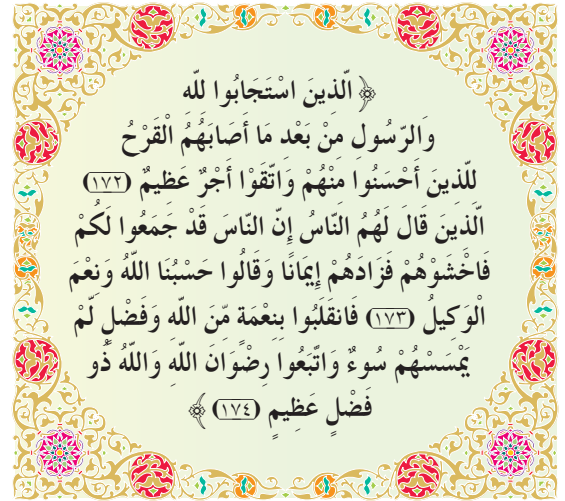 ﴿ الَّذِينَ اسْتَجَابُوا لِلّهِ
وَالرَّسُولِ مِنْ بَعْدِ مَا أَصَابَهُمُ الْقَرْحُ
لِلَّذِينَ أَحْسَنُوا مِنْهُمْ وَاتَّقَوْا أَجْرٌ عَظِيمٌ (١٧٢)
الَّذِينَ قَالَ لَهُمُ النَّاسُ إِنَّ النَّاسَ قَدْ جَمَعُوا لَكُمْ
فَاخْشَوْهُمْ فَزَادَهُمْ إِيمَانًا وَقَالُوا حَسْبُنَا اللَّهُ وَنِعْمَ
الْوَكِيلُ (١٧٣) فَانقَلَبُوا بِنِعْمَةٍ مِّنَ اللَّهِ وَفَضْلٍ لَّمْ
يَمْسَسْهُمْ سُوءٌ وَاتَّبَعُوا رِضْوَانَ اللَّهِ وَاللَّهُ ذُو
فَضْلٍ عَظِيمٍ (١٧٤) ﴾